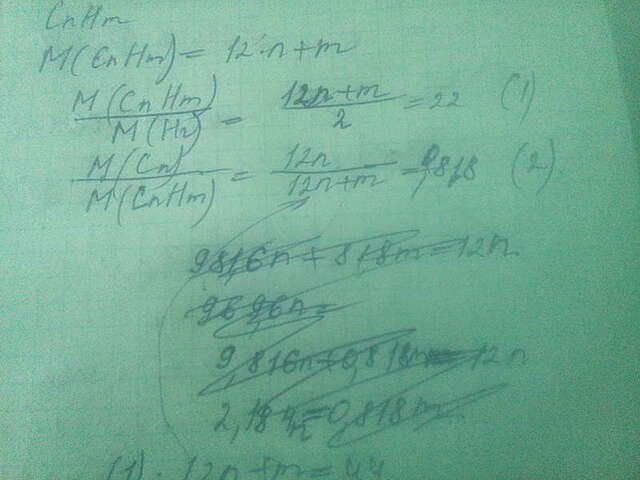 CnHm
M(CnHm) = 12·n+m
M(CnHm)/M(H2) = 12n+m/2 = 22 (1)
M(Cn)/M(CnHm) = 12n/12n+m = 0,818 (2)
9,816n + 818m = 12n
96,96n =
9,816n + 0,818m = 12n
2,184n = 0,818m
(1): 12n+m = 44